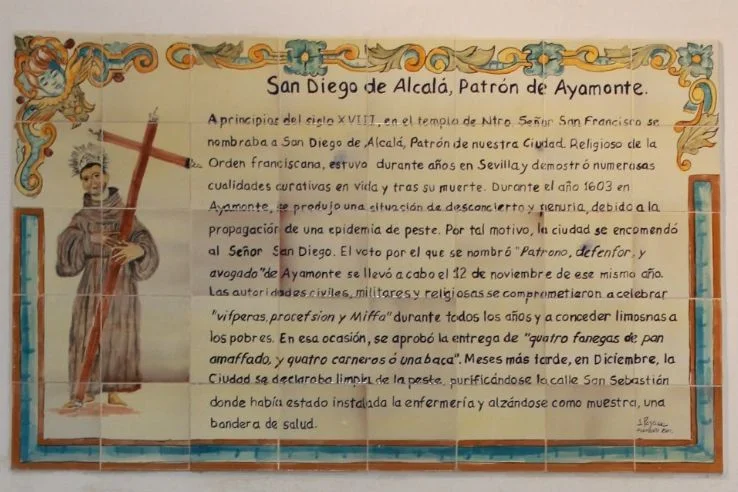 San Diego de Alcalá, Patrón de Ayamonte.
A principios del siglo XVIII, en el templo de Ntro. Señor San Francisco se
nombraba a San Diego de Alcalá, Patrón de nuestra Ciudad. Religioso de la
Orden franciscana, estuvo durante años en Sevilla y demostró numerosas
cualidades curativas en vida y tras su muerte. Durante el año 1603 en
Ayamonte, se produjo una situación de desconcierto y penuria, debido a la
propagación de una epidemia de peste. Por tal motivo, la ciudad se encomendó
al Señor San Diego. El voto por el que se nombró "Patrono, defenfor, y
avogado" de Ayamonte se llevó a cabo el 12 de noviembre de ese mismo año.
Las autoridades civiles, militares y religiosas se comprometieron a celebrar
"vifperas, procefsion y Miffa" durante todos los años y a conceder limosnas a
los pobres. En esa ocasión, se aprobó la entrega de "quatro fanegas de pan
amaffado, y quatro carneros ó una baca". Meses más tarde, en Diciembre, la
Ciudad se declaraba limpia de la peste, purificándose la calle San Sebastián
donde había estado instalada la enfermería y alzándose como muestra, una
bandera de salud.